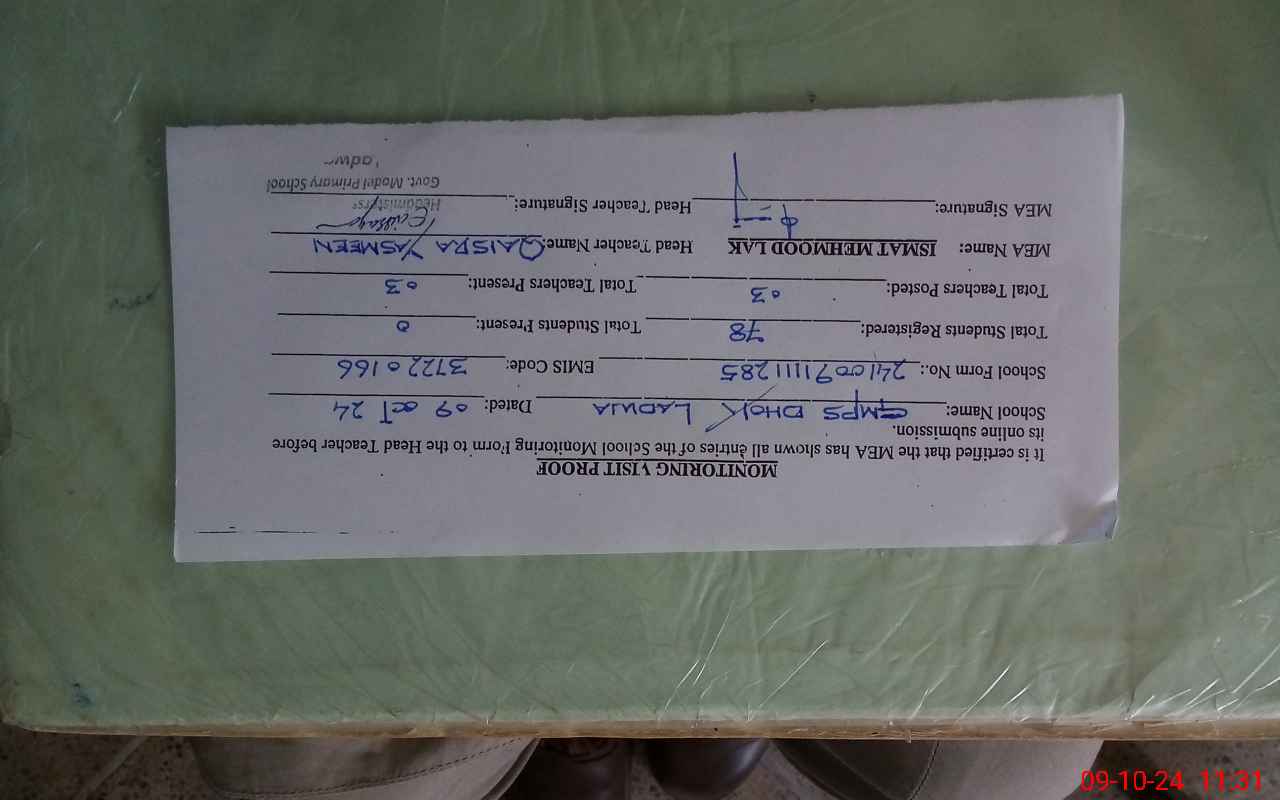 MONITORING VISIT PROOF
It is certified that the MEA has shown all entries of the School Monitoring Form to the Head Teacher before
its online submission.
School Name: GMPS DHOK LADWA Dated: 09 OCT 24
School Form No.: 241009111285 EMIS Code: 37220166
Total Students Registered: 78 Total Students Present: 0
Total Teachers Posted: 03 Total Teachers Present: 03
MEA Name: ISMAT MEHMOOD LAK Head Teacher Name: QAISRA YASMEEN
MEA Signature: Head Teacher Signature:
Headmisters
Govt. Model Primary School
09-10-24 11:31